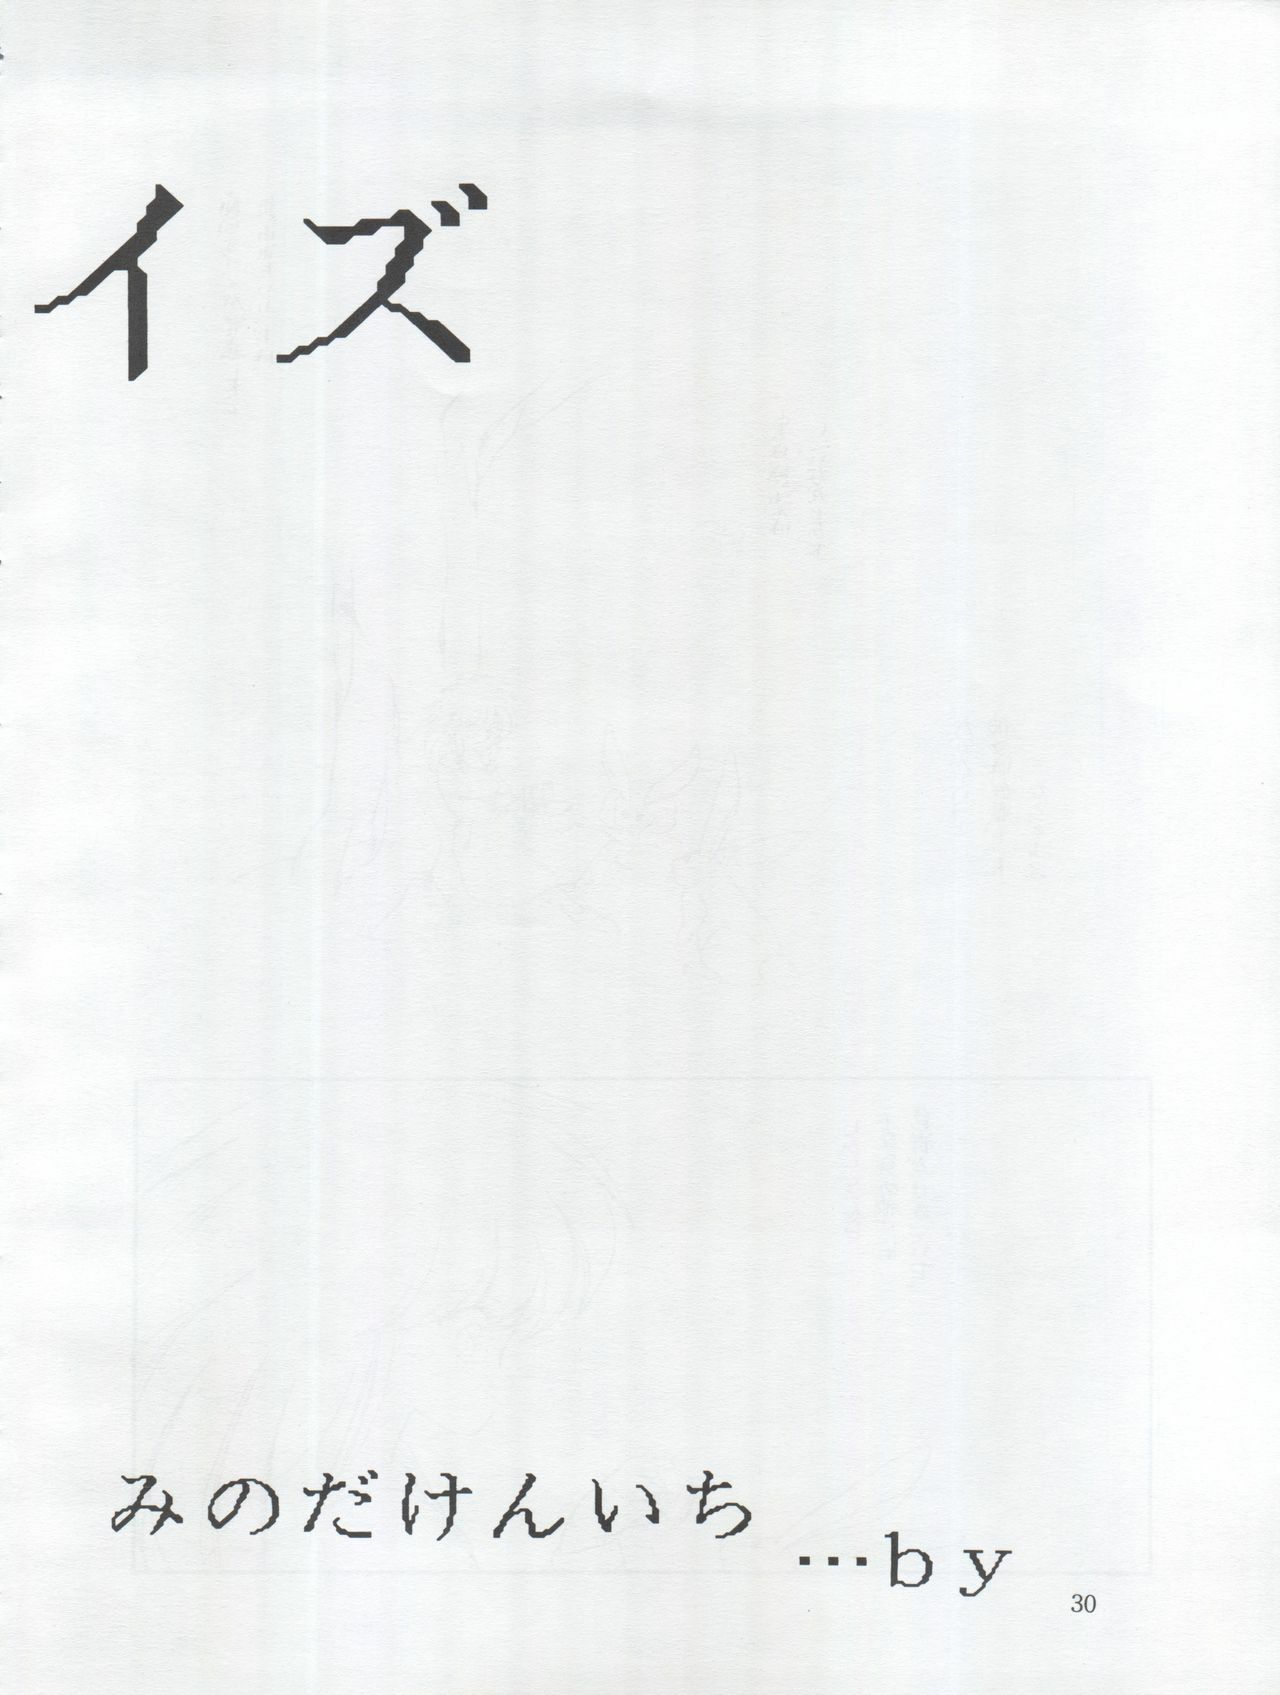 イズ
みのだけんいち
…by
30